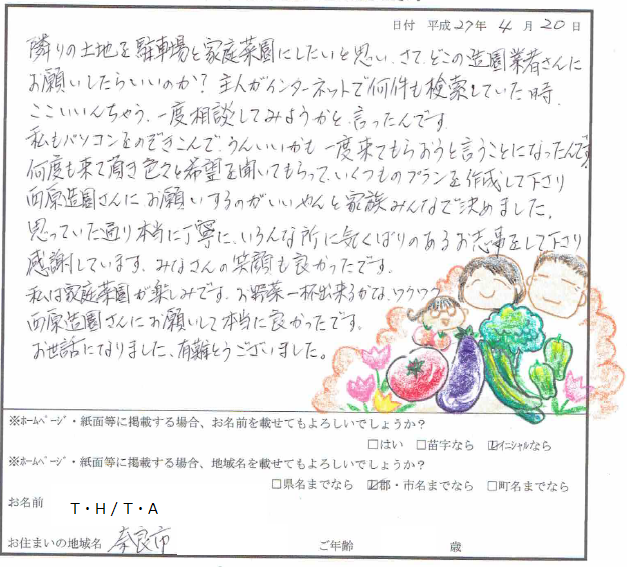 日付 平成27年 4月 20日
隣りの土地を駐車場と家庭菜園にしたいと思い、さて、どこの造園業者さんに
お願いしたらいいのか？ 主人がインターネットで何件も検索していた時、
ここいいんちゃう、一度相談してみようかと言ったんです。
私もパソコンをのぞきこんで、うんいいかも 一度来てもらおうと言うことになったんです。
何度も来て頂き色々と希望を聞いてもらって、いくつものプランを作成して下さり
西原造園さんにお願いするのがいいやんと家族みんなで決めました。
思っていた通り本当に丁寧に、いろんな所に気くばりのあるお志事をして下さり
感謝しています、みなさんの笑顔も良かったです。
私は家庭菜園が楽しみです。お野菜一杯出来るかな、ワクワク
西原造園さんにお願いして本当に良かったです。
お世話になりました、有難とうございました。
※ホームページ・紙面等に掲載する場合、お名前を載せてもよろしいでしょうか？
□はい □苗字なら ☑イニシャルなら
※ホームページ・紙面等に掲載する場合、地域名を載せてもよろしいでしょうか？
□県名までなら ☑郡・市名までなら □町名までなら
お名前 T・H/T・A
お住まいの地域名 奈良市 ご年齢 歳